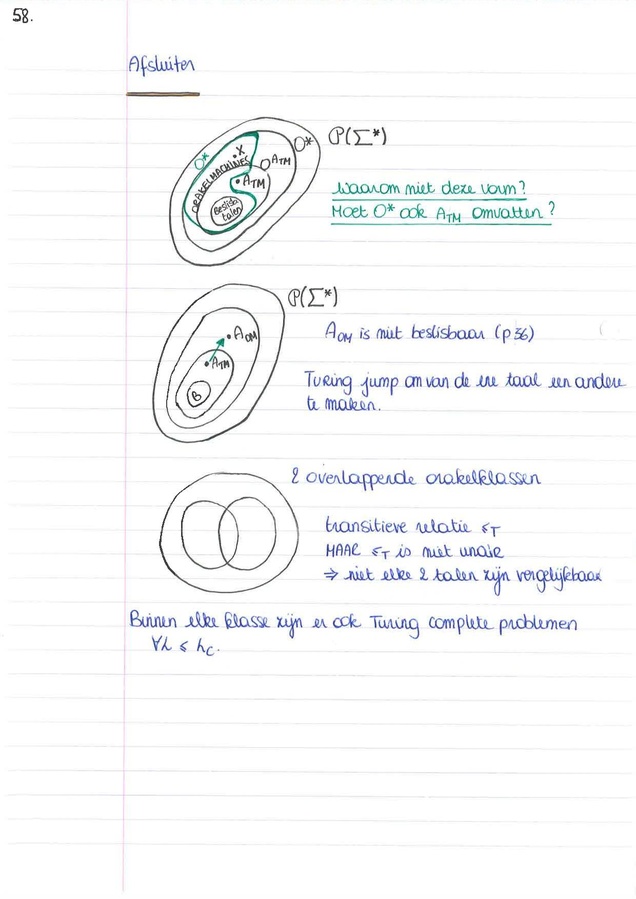 58.
Afsluiten
P(Σ*)
O*
O*
X
ORAKELMACHINES
O ATM
ATM
Beslisb
talen
Waarom niet deze vorm?
Moet O* ook ATM omvatten?
P(Σ*)
AOM
ATM
B
AOM is niet beslisbaar (p 36)
Turing jump om van de ene taal een andere
te maken.
2 overlappende orakelklassen
transitieve relatie ≤T
MAAR ≤T is niet unair
⇒ niet elke 2 talen zijn vergelijkbaar
Binnen elke klasse zijn er ook Turing complete problemen
∀L ≤ LC.